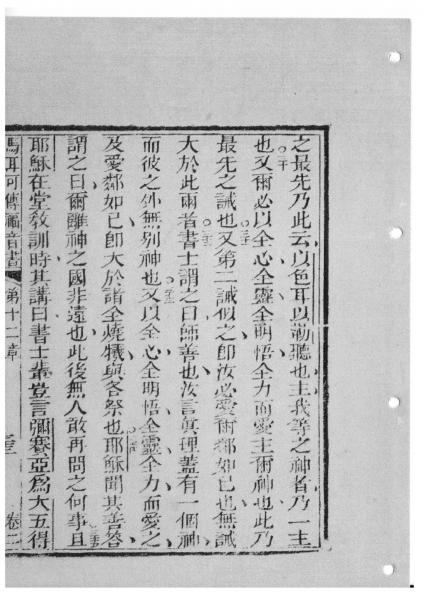 之最先乃此云以色耳以勒聽也主我等之神者乃一主
也又爾必以全心全靈全明悟全力而愛主爾神也此乃
最先之誡也又第二誡似之即汝必愛爾鄰如己也無誡
大於此兩者書士謂之曰師善也汝言眞理蓋有一個神
而彼之外無别神也又以全心全明悟全靈全力而愛之
及愛鄰如己即大於諸全燒犧與各祭也耶穌聞其善答
謂之曰爾離神之國非遠也此後無人敢再問之何事且
耶穌在堂敎訓時其講曰書士輩豈言彌賽亞爲大五得
馬耳可傳福音書 第十二章 卷二